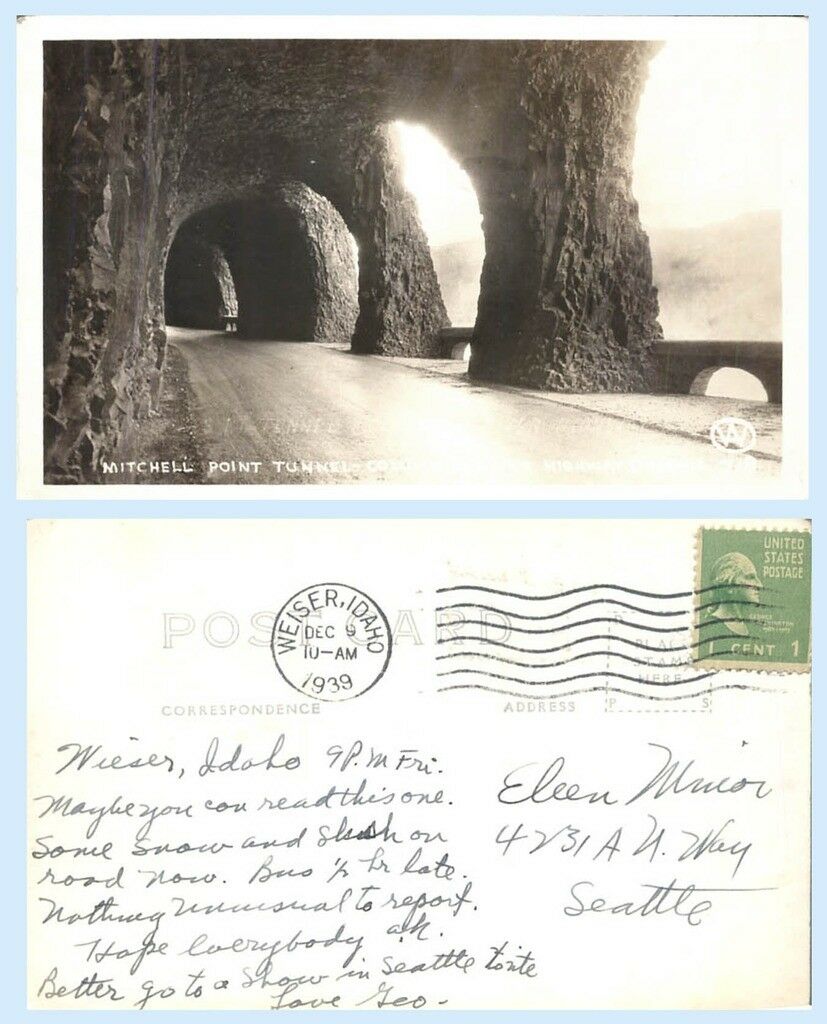 MITCHELL POINT TUNNEL-
W
UNITED
STATES
POSTAGE
GEORGE
WASHINGTON
1 CENT 1
WEISER, IDAHO
DEC 9
10-AM
1939
POST CARD
PLACE
STAMP
HERE
P S
CORRESPONDENCE
ADDRESS
Wieser, Idaho 9 P.M Fri.
Maybe you can read this one.
Some snow and slush on
road now. Bus ½ hr late.
Nothing unusual to report.
Hope everybody ok.
Better go to a show in Seattle tonite
Love Geo-
Eleen Minor
4231 A N. Way
Seattle